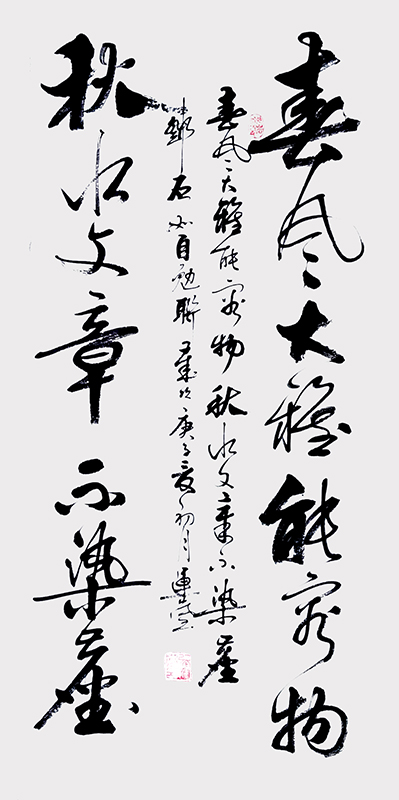 春風大雅能容物
秋水文章不染塵
春風大雅能容物秋水文章不染塵
鄧石如自勉聯歲次庚子夏初月